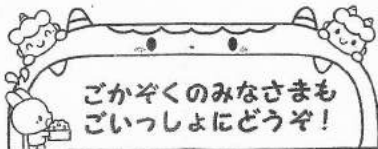 ごかぞくのみなさまも
ごいっしょにどうぞ！